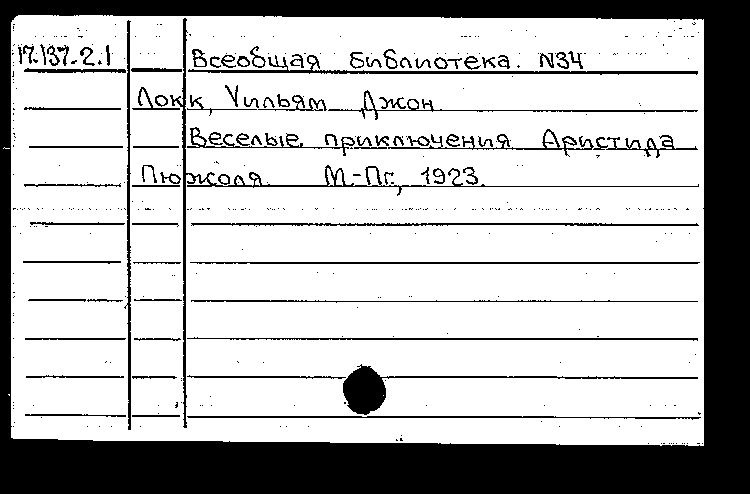 17.137.2.1 Всеобщая библиотека. N34
Локк, Уильям Джон
Веселые приключения Аристида
Пюжоля. М.-Пг., 1923.